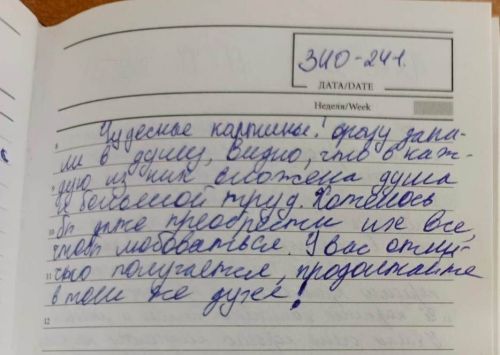 ЗИО-241.
ДАТА/DATE
Неделя/Week
8
Чудесные картины! Сразу запа-
ли в душу, видно, что в каж-
9
дую из них вложена душа
и большой труд. Хотелось
10
бы даже преобрести их все,
чтоб любоваться. У Вас отлич-
11
но получается, продолжайте
в том же духе!
12